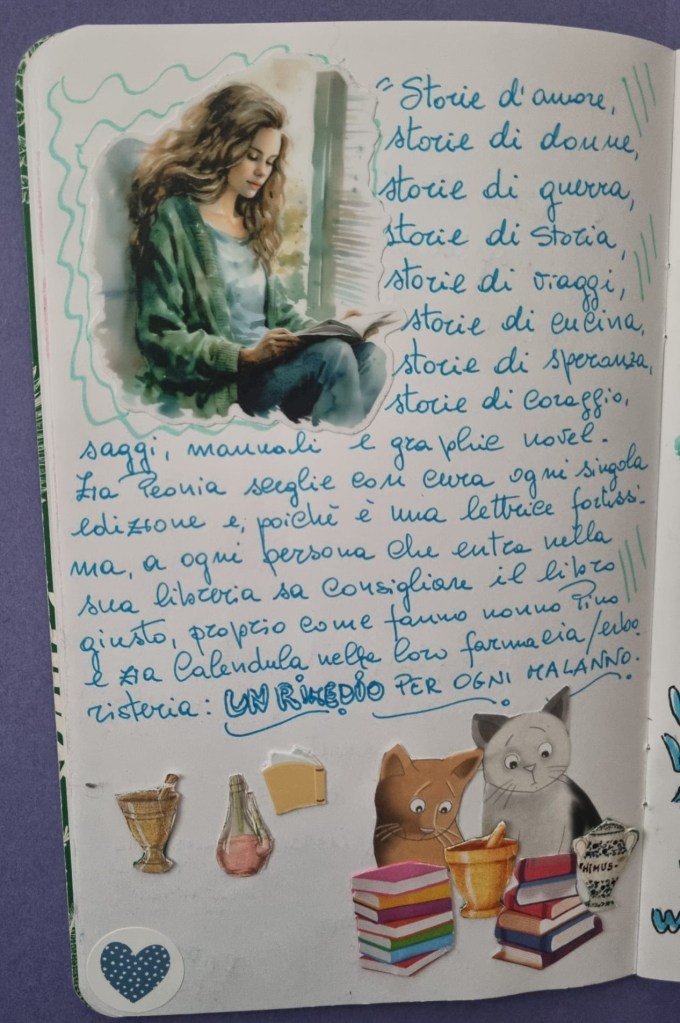 "Storie d'amore,
storie di donne,
storie di guerra,
storie di storia,
storie di viaggi,
storie di cucina,
storie di speranza,
storie di coraggio,
saggi, manuali e graphic novel.
Zia Peonia sceglie con cura ogni singola
edizione e, poiché è una lettrice fortissi-
ma, a ogni persona che entra nella
sua libreria sa consigliare il libro
giusto, proprio come fanno nonno Pino
e zia Calendula nella loro farmacia/erbo
risteria: UN RIMEDIO PER OGNI MALANNO.
HIMUS